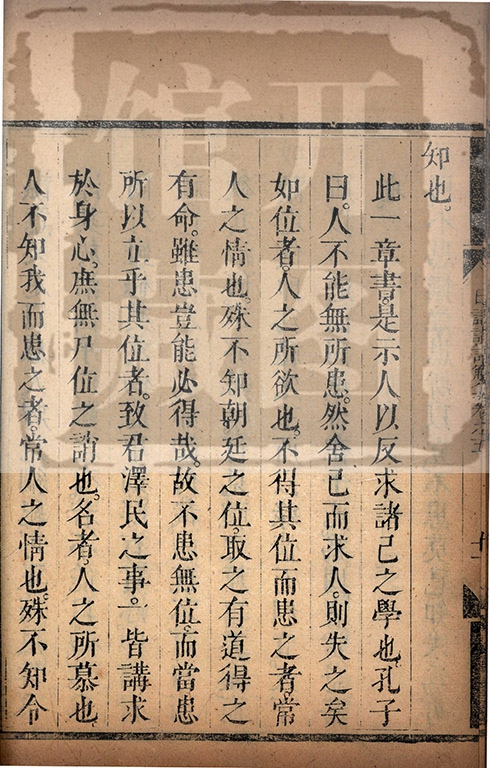 知也。
此一章書。是示人以反求諸己之學也。孔子
曰。人不能無所患。然舍己而求人。則失之矣
如位者。人之所欲也。不得其位而患之者。常
人之情也。殊不知朝廷之位。取之有道得之
有命。雖患豈能必得哉。故不患無位。而當患
所以立乎其位者。致君澤民之事。一皆講求
於身心。庶無尸位之誚也。名者。人之所慕也
人不知我而患之者。常人之情也。殊不知令